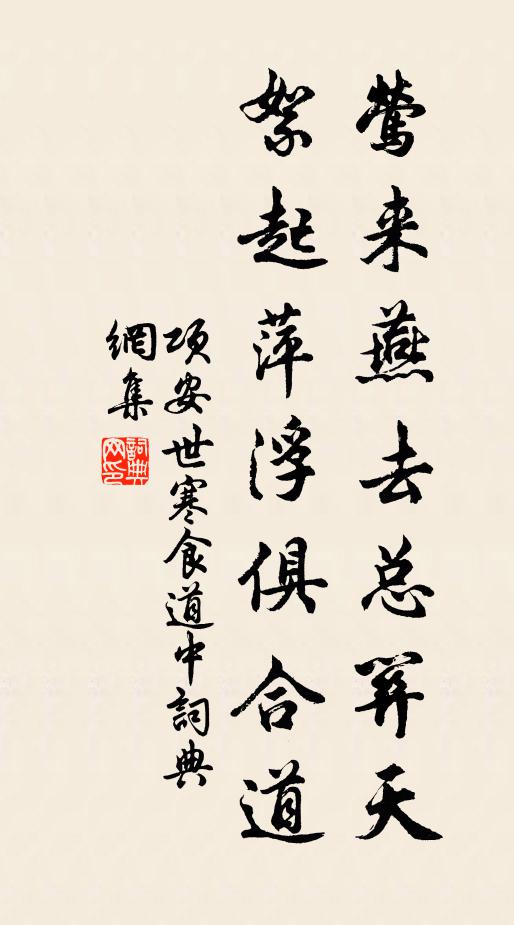 鶯来燕去总關天
絮起萍浮俱合道
项安世寒食道中詞典
網集
詞典
网印